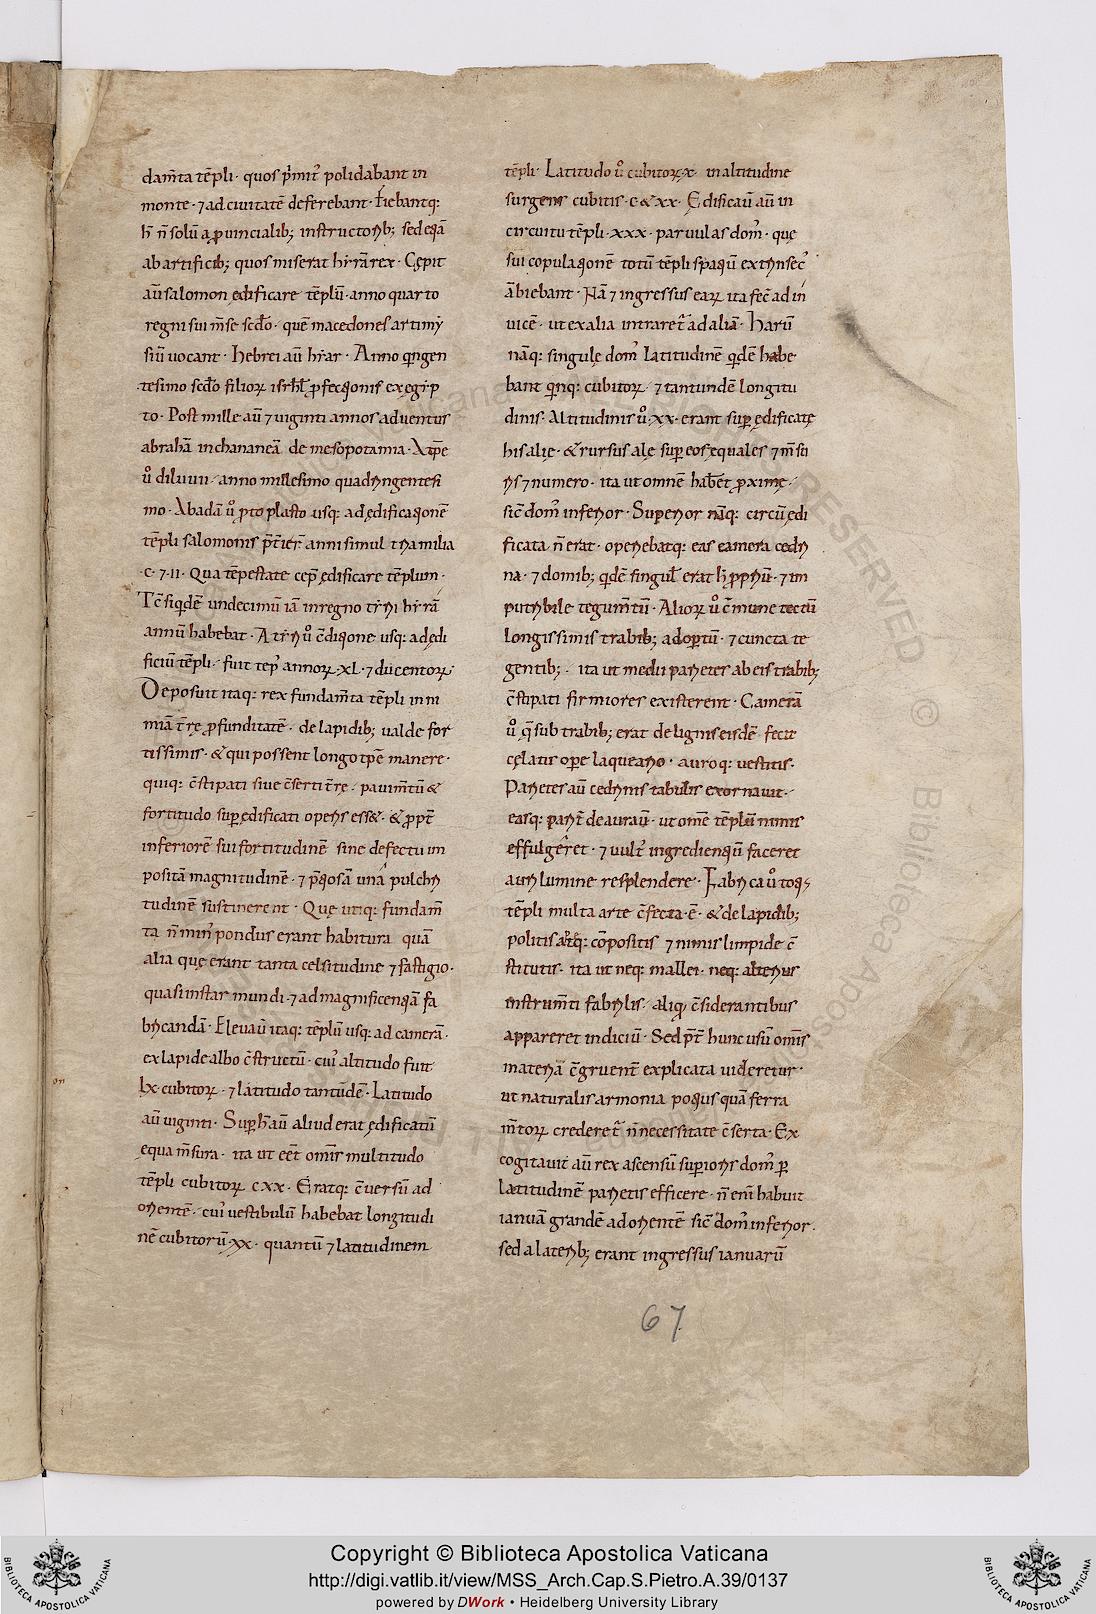 dam̄ta tēpli · quos p̃mit᷑ polidabant in
monte · ⁊ ad ciuitatē deferebant · Fiebantq:
h̄ n̄ solū a ꝓuincialib; instructorib; sed etiā
ab artificib; quos miserat hirā rex · Cępit
aū salomon ędificare tēplū · anno quarto
regni sui m̄se scd̄o · quē macedones artimi
siū uocant · hebrei aū hiar · Anno qingen
tesimo scd̄o filioꝝ isrl̄ ꝓfectionis ex egip
to · Post mille aū ⁊ uiginti annos aduentus
abrahā in chananeā de mesopotamia · A tp̄e
u̾o diluuii · anno millesimo quadringentesi
mo · Ab adā u̾o protoplasto usq: ad ędificationē
tēpli salomonis p̄t̾ier̄ anni simul tria milia
·c·⁊·ii· Qua tēpestate cep̾ ędificare tēplum ·
Tc̄ siqidē undecimū iā in regno tiri hirā
annū habebat · A tiri u̾o c̄ditione usq: ad ędi
ficiū tēpli · fuit tēp᷒ annoꝝ · XL · ⁊ ducentoꝝ ·
Deposuit itaq: rex fundam̄ta tēpli in ni
miā t̄rę ꝓfunditatē · de lapidib; ualde for
tissimis · & qui possent longo tp̄e manere ·
quiq: c̄stipati siue c̄serti t̄rę · pauim̄tū &
fortitudo suꝑędificati operis ess& · & ꝓpt̄
inferiorē sui fortitudinē sine defectu im
positā magnitudinē · ⁊ p̄tiosā unā pulchri
tudinē sustinerent · Quę utiq: fundam̄
ta n̄ min᷒ pondus erant habitura quā
alia quę erant tanta celsitudine ⁊ fastigio ·
quasi instar mundi · ⁊ ad magnificentiā fa
bricandā · Eleuaū itaq: tēplū usq: ad camerā ·
ex lapide albo c̄structū · cui᷒ altitudo fuit
lx · cubitoꝝ · ⁊ latitudo tantūdē · Latitudo
aū uiginti · Suꝑ h̄ aū aliud erat ędificatū
ęqua m̄sura · ita ut eēt omīs multitudo
tēpli cubitoꝝ cxx · Eratq: c̄uersū ad
orientē · cui᷒ uestibulū habebat longitudi
nē cubitorū xx · quantū ⁊ latitudinem
tēpli · Latitudo u̾o cubitoꝝ · x · in altitudine
surgens cubitis · c & xx · Ędificauit aū in
circuitu tēpli · xxx · paruulas dom᷒ · quę
sui copulationē totū tēpli spatiū extrinsec᷒
ābiebant · Nā ⁊ ingressus eaꝝ ita fec̄ ad in
uicē · ut ex alia intraret̄ ad aliā · Harū
nāq: singulę dom᷒ latitudinē qidē habe
bant qinq: cubitoꝝ · ⁊ tantundē longitu
dinis · Altitudinis u̾o · xx · erant suꝑędificatę
his alię · & rursus alę suꝑ eos ęquales ⁊ m̄su
ris ⁊ numero · ita ut omnē hab̄et ꝓximę ·
sic̄ dom᷒ inferior · Superior nāq: circū ędi
ficata n̄ erat · operiebatq: eas camera cedri
na · ⁊ domib; qidē singul̄ erat h̄ ꝓpriū · ⁊ im
putribile tegum̄tū · Alioꝝ u̾o c̄mune tectū
longissimis trabib; adopertū · ⁊ cuncta te
gentib; · ita ut medii parietes ab eis trabib;
c̄stipati firmiores existerent · Camerā
u̾o q̄ sub trabib; erat de lignis eisdē fecit
cęlatis oꝑe laqueario · auroq: uestitis ·
Parietes aū cedrinis tabulis exornauit ·
easq: parit̄ deauraū · ut omē tēplū nimis
effulgeret · ⁊ uult᷒ ingredientiū faceret
auri lumine resplendere · Fabrica u̾o toti᷒
tēpli multa arte c̄fecta · ē · & de lapidib;
politis atq: cōpositis ⁊ nimis limpide c̄
stitutis · ita ut neq: mallei · neq: alterius
instrum̄ti fabrilis · aliq̾ c̄siderantibus
appareret indiciū · Sed p̄t̄ hunc usū omīs
materia c̄gruent̄ explicata uideretur ·
ut naturalis armonia potius quā ferra
m̄toꝝ crederet̄ n̄ necessitate c̄serta · Ex
cogitauit aū rex ascensū superioris dom᷒ ꝑ
latitudinē parietis efficere · n̄ eni habuit
ianuā grandē ad orientē sic̄ dom᷒ inferior ·
sed a laterib; erant ingressus ianuarū
67
Copyright © Biblioteca Apostolica Vaticana
http://digi.vatlib.it/view/MSS_Arch.Cap.S.Pietro.A.39/0137
powered by DWork • Heidelberg University Library